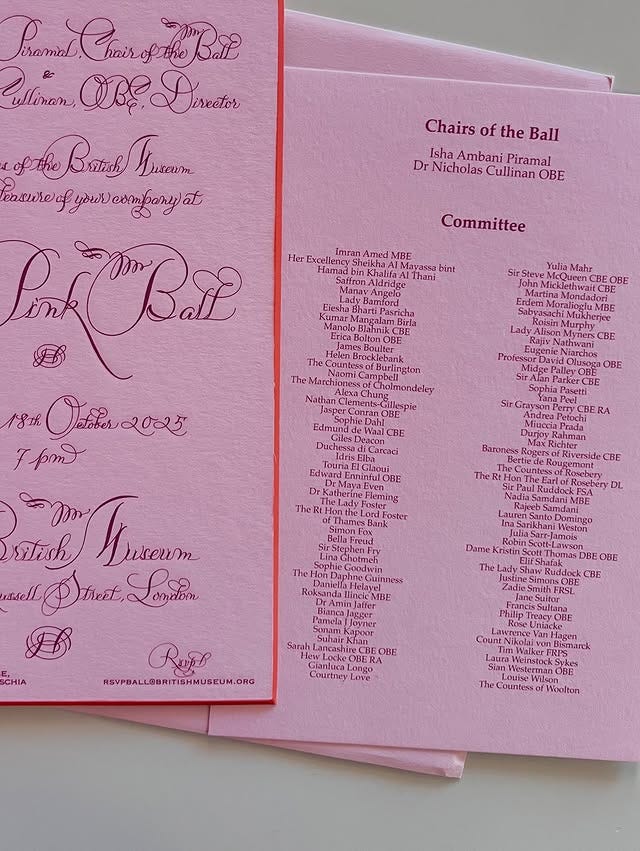 Piramal, Chair of the Ball
&
Cullinan, OBE, Director
of the British Museum
pleasure of your company at
Pink Ball
18th October 2025
7 pm
British Museum
Russell Street, London
Rsvp
RSVPBALL@BRITISHMUSEUM.ORG
Chairs of the Ball
Isha Ambani Piramal
Dr Nicholas Cullinan OBE
Committee
Imran Amed MBE
Her Excellency Sheikha Al Mayassa bint
Hamad bin Khalifa Al Thani
Saffron Aldridge
Manav Angelo
Lady Bamford
Eiesha Bharti Pasricha
Kumar Mangalam Birla
Manolo Blahnik CBE
Erica Bolton OBE
James Boulter
Helen Brocklebank
The Countess of Burlington
Naomi Campbell
The Marchioness of Cholmondeley
Alexa Chung
Nathan Clements-Gillespie
Jasper Conran OBE
Sophie Dahl
Edmund de Waal CBE
Giles Deacon
Duchessa di Carcaci
Idris Elba
Touria El Glaoui
Edward Enninful OBE
Dr Maya Even
Dr Katherine Fleming
The Lady Foster
The Rt Hon the Lord Foster
of Thames Bank
Simon Fox
Bella Freud
Sir Stephen Fry
Lina Ghotmeh
Sophie Goodwin
The Hon Daphne Guinness
Daniella Helayel
Roksanda Ilincic MBE
Dr Amin Jaffer
Bianca Jagger
Pamela J Joyner
Sonam Kapoor
Suhair Khan
Sarah Lancashire CBE OBE
Hew Locke OBE RA
Gianluca Longo
Courtney Love
Yulia Mahr
Sir Steve McQueen CBE OBE
John Micklethwait CBE
Martina Mondadori
Erdem Moralioglu MBE
Sabyasachi Mukherjee
Roisin Murphy
Lady Alison Myners CBE
Rajiv Nathwani
Eugenie Niarchos
Professor David Olusoga OBE
Midge Palley OBE
Sir Alan Parker CBE
Sophia Pasetti
Yana Peel
Sir Grayson Perry CBE RA
Andrea Petochi
Miuccia Prada
Durjoy Rahman
Max Richter
Baroness Rogers of Riverside CBE
Bertie de Rougemont
The Countess of Rosebery
The Rt Hon The Earl of Rosebery DL
Sir Paul Ruddock FSA
Nadia Samdani MBE
Rajeeb Samdani
Lauren Santo Domingo
Ina Sarikhani Weston
Julia Sarr-Jamois
Robin Scott-Lawson
Dame Kristin Scott Thomas DBE OBE
Elif Shafak
The Lady Shaw Ruddock CBE
Justine Simons OBE
Zadie Smith FRSL
Jane Suitor
Francis Sultana
Philip Treacy OBE
Rose Uniacke
Lawrence Van Hagen
Count Nikolai von Bismarck
Tim Walker FRPS
Laura Weinstock Sykes
Sian Westerman OBE
Louise Wilson
The Countess of Woolton